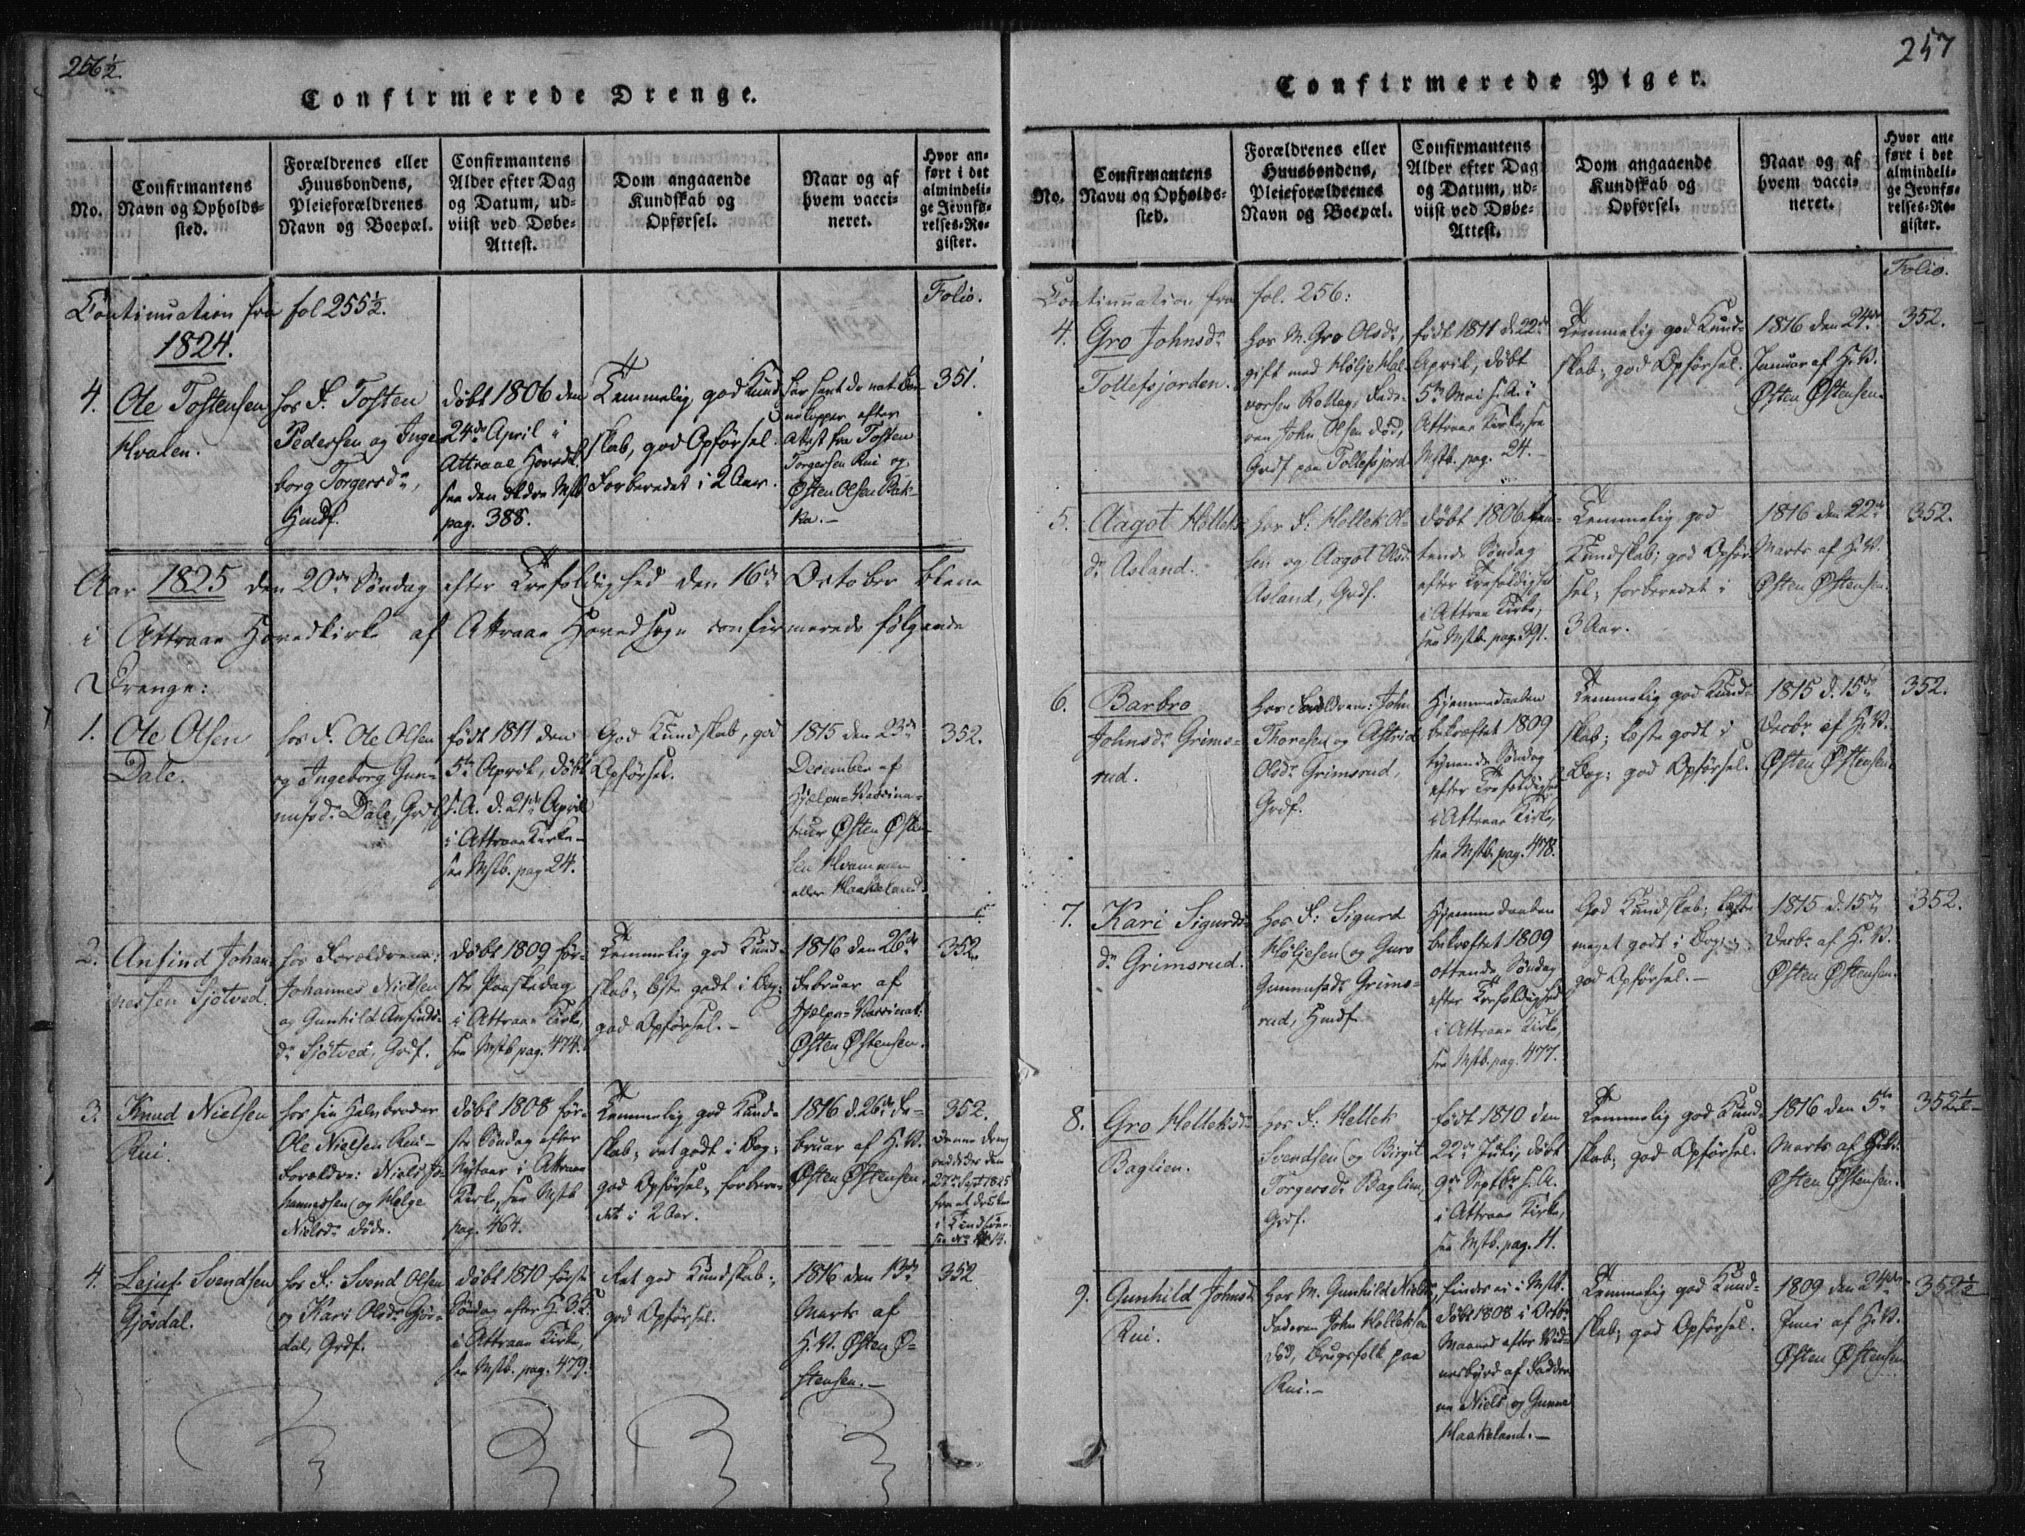 256½
Confirmerede Drenge.
No.
Confirmantens
Navn og Opholds-
sted.
Forældrenes eller
Huusbondens,
Pleieforældrenes
Navn og Boepæl.
Confirmantens
Alder efter Dag
og Datum, ud-
viist ved Døbe-
Attest.
Dom angaaende
Kundskab og
Opførsel.
Naar og af
hvem vacci-
neret.
Hvor an-
ført i det
almindeli-
ge Jevnfø-
relses-Re-
gister.
Continuation fra fol 255½.
Folio.
1824.
4.
Ole Tostensen
Kvalen.
hos F. Tosten
Pedersen og Inge-
borg Torgersdr,
Hmdf.
døbt 1806 den
24de April i
Attraae Hovedk.
see den ældre Mstb
pag. 388.
Temmelig god Kund-
skab, god Opførsel.
Forberedet i 2 Aar.
har havt de nat
kopper efter
Attest fra Tosten
Torgersen Rui og
Østen Olsen Bak-
ka.-
351.
Aar 1825 den 20de Søndag efter Trefoldighed den 16de October bleve
i Attraae Hovedkirke af Attraae Hovedsogn confirmerede følgende
Drenge:
1.
Ole Olsen
Dale.
hos F. Ole Olsen
og Ingeborg Gun-
nufsdr Dale, Grdf.
født 1811 den
5te April, døbt
s. A. d. 21de April
i Attraae Kirke-
see Mstb. pag 24.
God Kundskab, god
Opførsel.
1815 den 23de
December af
Hjelpe-Vaccina-
teur Østen Østen-
sen Kvammen
eller Haakeland.
352.
2.
Anfind Johan-
nessen Sjøtved.
hos Forældrene:
Johannes Nielsen
og Gunhild Anfinds-
dr Sjøtved, Grdf.
døbt 1809 før-
ste Paaskedag
i Attraae Kirke,
see Mstb pag. 474.
Temmelig god Kund-
skab; læste godt i Bog;
god Opførsel.-
1816 den 26de
Februar af
Hjelpe-Vaccinat.
Østen Østensen.
352.
3.
Knud Nielsen
Rui.
hos sin Halvbroder
Ole Nielsen Rui-
Forældre: Niels Jo-
hannessen og Helge
Nielsdr døde.
døbt 1808 før-
ste Søndag efter
Nytaar i Attraae
Kirke, see Mstb
pag. 464.
Temmelig god Kund-
skab; ret godt i Bog;
god Opførsel, forbere-
det i 2 Aar.
1816 d. 26de Fe-
bruar af H.V.
Østen Østensen.
352.
4.
Lejuf Svendsen
Gjøsdal.
hos F: Svend Olsen
og Kari Olsdr Gjøs-
dal, Grdf.
døbt 1810 første
Søndag efter H. 3 K.
i Attraae Kirke,
see Mstb. pag. 479.
Ret god Kundskab;
god Opførsel.
1816 den 13de
Marts af
H.V. Østen Ø-
stensen.-
352
257
Confirmerede Piger.
No.
Confirmantens
Navn og Opholds-
sted.
Forældrenes eller
Huusbondens,
Pleieforældrenes
Navn og Boepæl.
Confirmantens
Alder efter Dag
og Datum, ud-
viist ved Døbe-
Attest.
Dom angaaende
Kundskab og
Opførsel.
Naar og af
hvem vacci-
neret.
Hvor an-
ført i det
almindeli-
ge Jevnfø-
relses-Re-
gister.
Folio.
Continuation fra fol. 256:
4.
Gro Johnsdr
Tollefsjorden.
hos M. Gro Olsdr,
gift med Høljе Hal-
vorsen Rollag; Fade-
ren John Olsen død,
Grdf paa Tollefsjord.
født 1811 d. 22de
April, døbt
5te Mai s. A. i
Attraae Kirke, see
Mstb. pag. 24.-
Temmelig god Kund-
skab; god Opførsel.
1816 den 24de
Januar af H.V.
Østen Østensen.
352.
5.
Aagot Helleks-
dr Asland.
hos F: Hellek Ol-
sen og Aagot Olsdr
Asland, Grdf.
døbt 1806
tende Søndag
efter Trefoldighed
i Attraae Kirke,
see Mstb. pag. 391.
Temmelig god
Kundskab; god Opfør-
sel, forberedet i
3 Aar.-
1816 den 22de
Marts af H.V.
Østen Østensen.
352.
6.
Barbro
Johnsdr Grims-
rud.
hos Forældrene: John
Thoresen og Astrid
Olsdr Grimsrud,
Grdf.
Hjemmedaaben
bekræftet 1809
tyvende Søndag
efter Trefoldighed
i Attraae Kirke,
see Mstb. pag. 478.
Temmelig god Kund-
skab; læste godt i
Bog; god Opførsel.
1815 d. 15de
Decbr. af H.V.
Østen Østensen.
352.
7.
Kari Sigurds-
dr Grimsrud.
hos F: Sigurd
Høljesen og Guro
Gunnufsdr Grims-
rud, Hmdf
Hjemmedaaben
bekræftet 1809
ottende Søndag
efter Trefoldighed
i Attraae Kirke,
see Mstb. pag. 477.
God Kundskab; læste
meget godt i Bog;
god Opførsel.-
1815 d. 15de
Decbr. af H.V.
Østen Østensen.
352.
8.
Gro Helleksdr
Baglien.
hos F: Hellek
Svendsen og Birgit
Torgersdr Baglien,
Grdf.
født 1810 den
22de Juli, døbt
9de Septbr s. A.
i Attraae Kirke,
see Mstb. pag. 11.
Temmelig god Kund-
skab; god Opførsel.
1816 den 5te
Marts af H.V.
Østen Østensen.
352½
9.
Gunhild Johnsdr
Rui.
hos M. Gunhild Nielsdr,
Faderen John Helleksen
død, Brugsfolk paa
Rui.-
findes ei i Mstb.
døbt 1808 i Octbr
Maaned efter Vid-
nesbyrd af Fadder-
ne Niels og Gunne
Haakeland.-
Temmelig god Kund-
skab; god Opførsel.
1809 den 24de
Juni af H.V.
Østen Østensen
352½